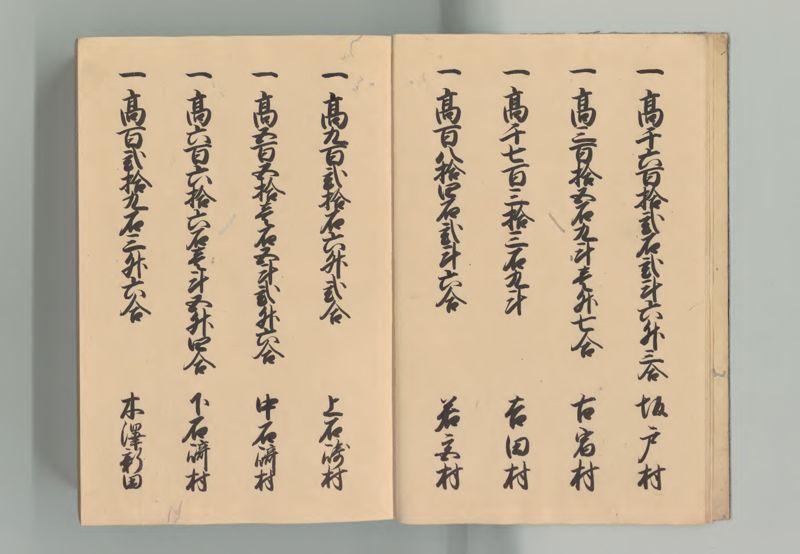 一 高千六百拾弐石弐斗六升三合 坂戸村
一 高三百拾五石九斗壱升七合 古宿村
一 高千七百三拾三石九斗 吉田村
一 高百八拾四石弐斗六合 若宮村
一 高九百弐拾石六升弐合 上石崎村
一 高五百五拾壱石五斗弐升六合 中石崎村
一 高六百六拾六石壱斗五升四合 下石崎村
一 高百弐拾九石三升六合 木澤新田